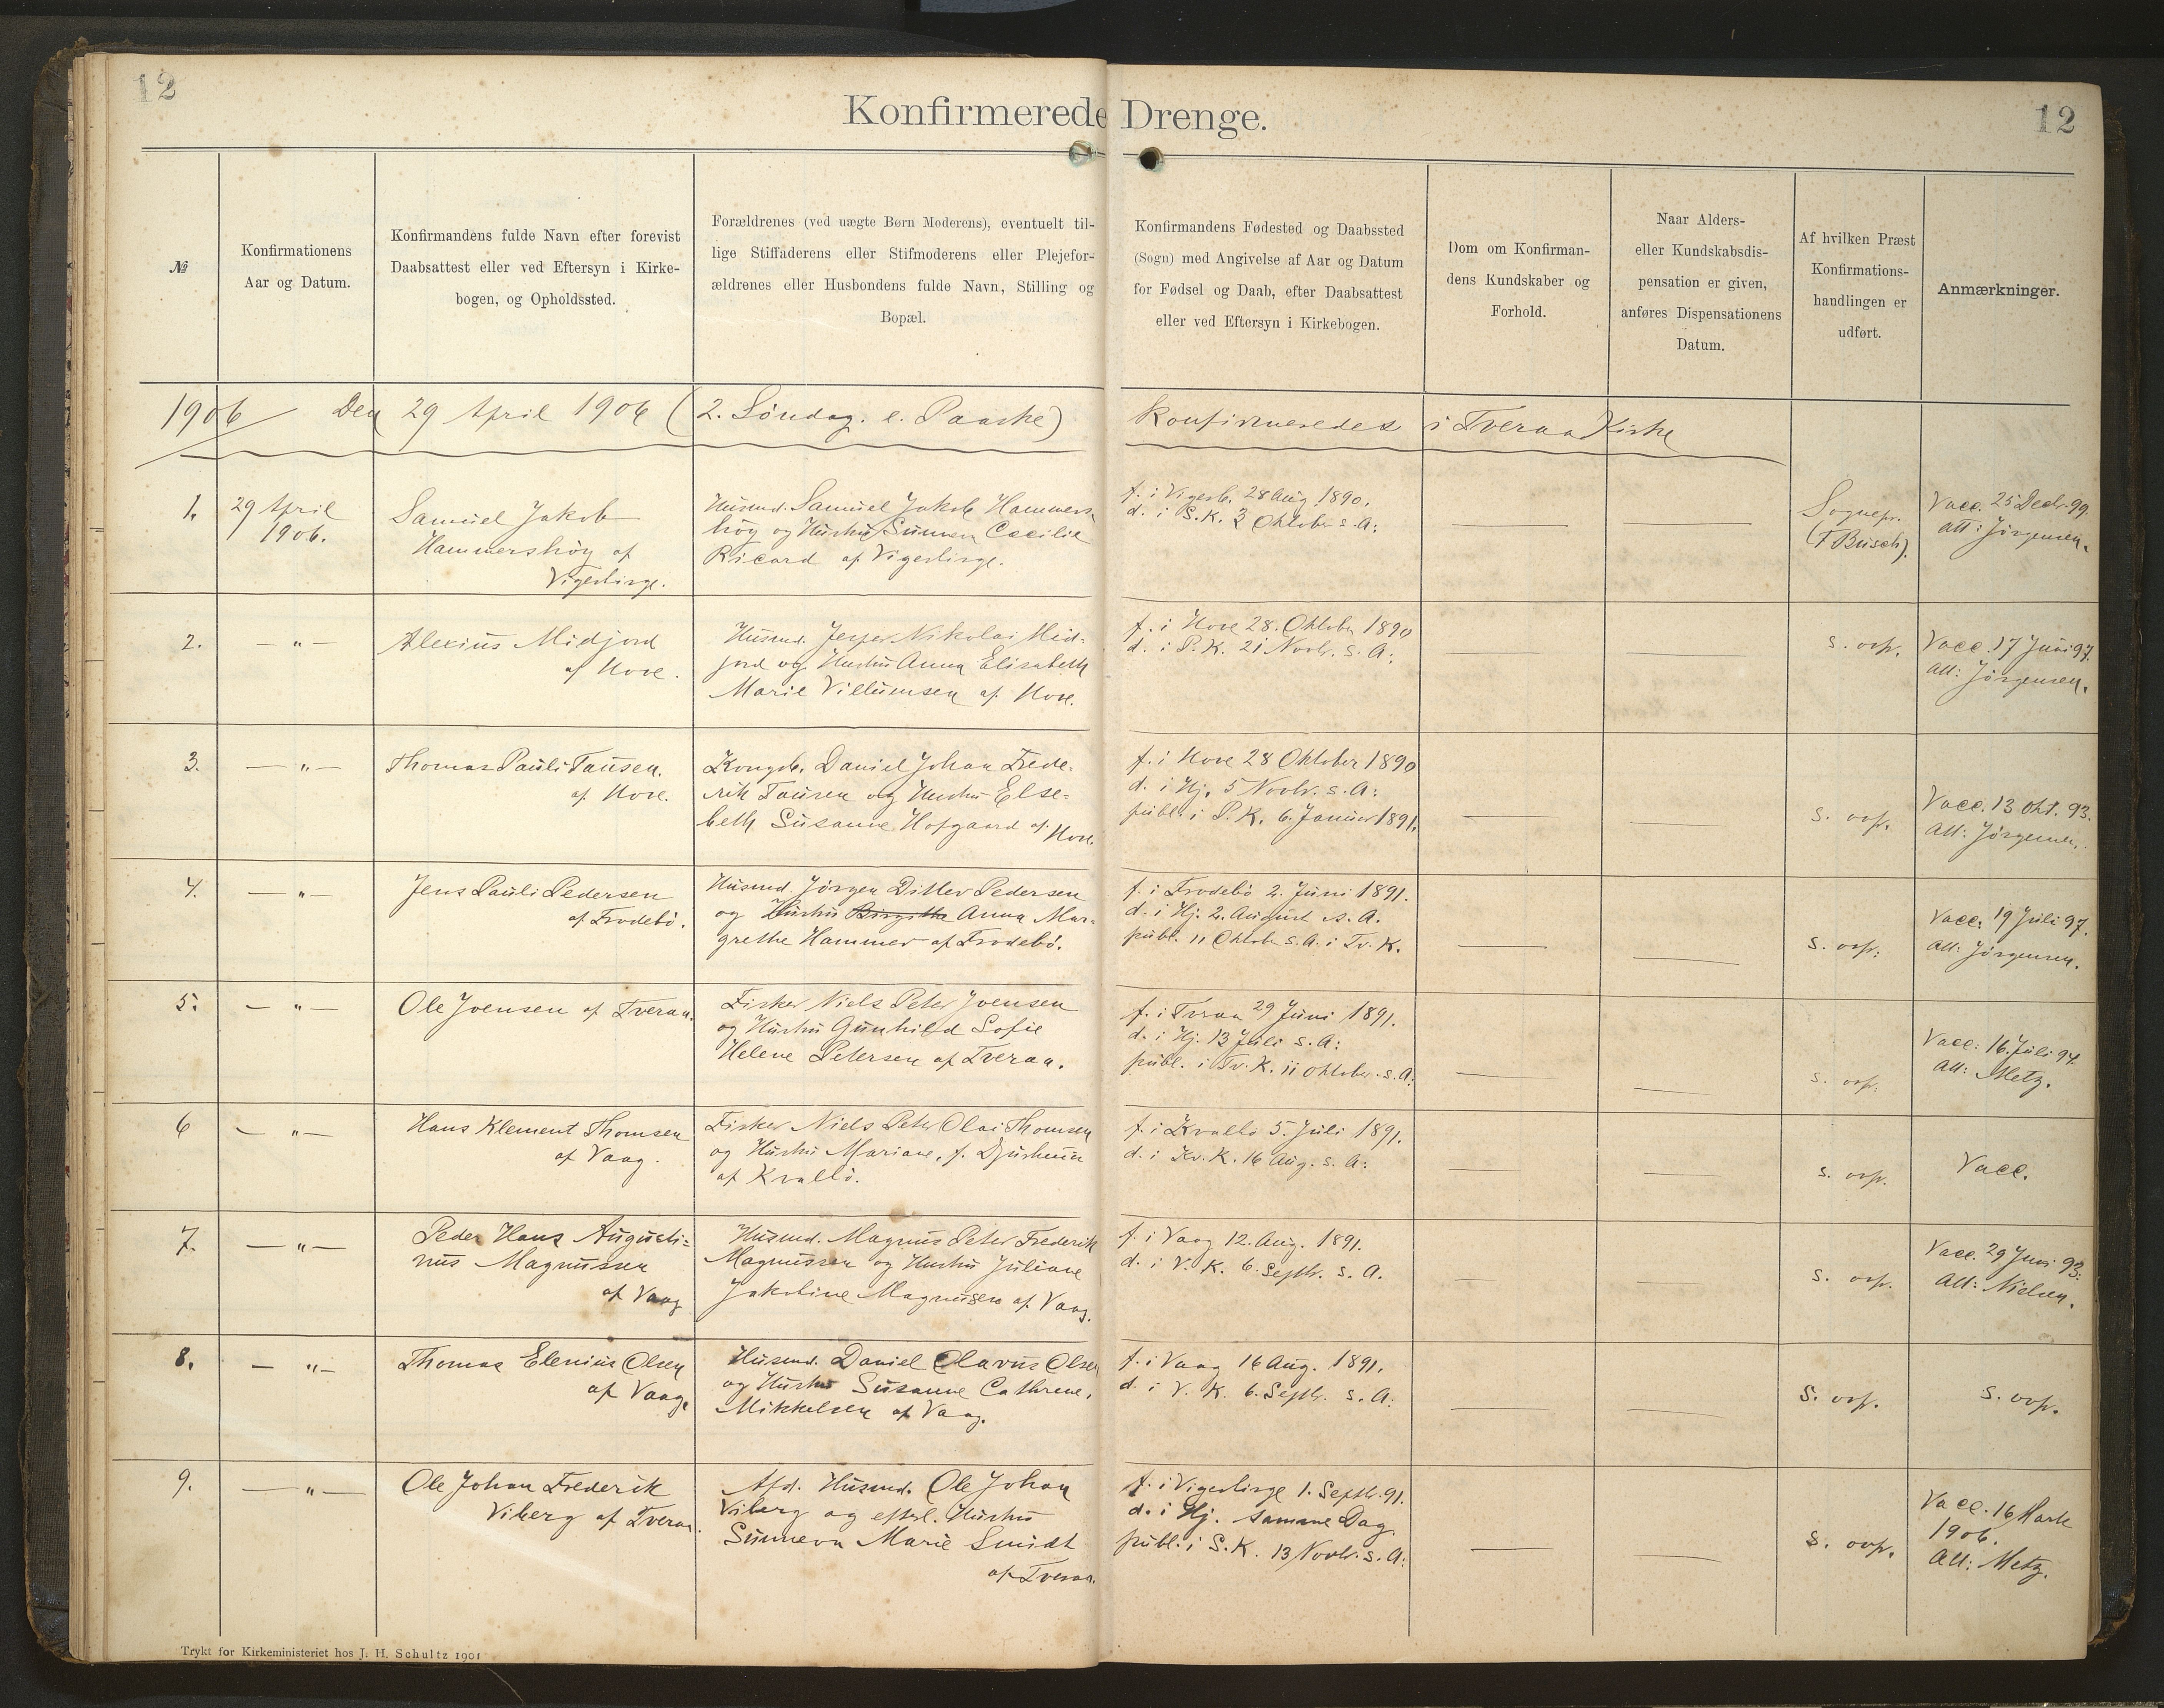 12
Konfirmerede Drenge.
12
№
Konfirmationens
Aar og Datum.
Konfirmandens fulde Navn efter forevist
Daabsattest eller ved Eftersyn i Kirke-
bogen, og Opholdssted.
Forældrenes (ved uægte Børn Moderens), eventuelt til-
lige Stiffaderens eller Stifmoderens eller Plejefor-
ældrenes eller Husbondens fulde Navn, Stilling og
Bopæl.
Konfirmandens Fødested og Daabssted
(Sogn) med Angivelse af Aar og Datum
for Fødsel og Daab, efter Daabsattest
eller ved Eftersyn i Kirkebogen.
Dom om Konfirman-
dens Kundskaber og
Forhold.
Naar Alders-
eller Kundskabsdis-
pensation er given,
anføres Dispensationens
Datum.
Af hvilken Præst
Konfirmations-
handlingen er
udført.
Anmærkninger.
1906 Den 29 April 1906 (2. Søndag. e. Paaske) Konfirmeredes i Tveraa Kirke
1.
29 April
1906.
Samuel Jakob
Hammershøg af
Vigerbirge.
Husmd. Samuel Jakob Hammers
høg og Hustru Sunneva Cecilie
Ricard af Vigerbirge.
f. i Vigerb. 28 Aug. 1890.
d. i S. K. 3 Oktober s. A:
Sognepr.
(F Busch).
Vacc. 25 Decbr. 99.
att: Jørgensen.
2.
— " —
Alexius Midjord
af Hove.
Husmd. Jesper Nikolai Mid-
jord og Hustru Anna Elisabeth
Marie Villumsen af Hove.
f. i Hove 28. Oktober 1890
d. i P. K. 21 Novbr. s. A:
s. ovf.
Vacc. 17 Juni 97.
att: Jørgensen.
3.
— " —
Thomas Pauli Tausen.
af Hove.
Kongsb. Daniel Johan Frede-
rik Tausen og Hustru Else-
beth Susanne Hofgaard af Hove.
f. i Hove 28 Oktober 1890
d. i Hj. 5 Novbr. s. A:
publ. i P. K. 6. Januar 1891.
s. ovf.
Vacc. 13 Okt. 93.
Att: Jørgensen.
4.
— " —
Jens Pauli Pedersen
af Frodebø.
Husmd. Jørgen Ditlev Pedersen
og Hustru Birgithe Anna Mar-
grethe Hammer af Frodebø.
f. i Frodebø 2. Juni 1891.
d. i Hj. 2. August s. A.
publ. 11 Oktober s. A. i Tv. K.
s. ovf.
Vacc. 19 Juli 97.
att: Jørgensen.
5.
— " —
Ole Joensen af Tveraa.
Fisker Niels Peter Joensen
og Hustru Gunhild Sofie
Helene Petersen af Tveraa.
f. i Tveraa 29 Juni 1891.
d. i Hj. 13 Juli s. A:
publ. i Tv. K. 11 Oktober. s. A:
s. ovf.
Vacc: 16. Juli 94.
Att: Metz.
6
— " —
Hans Klement Thomsen
af Vaag.
Fisker Niels Peter Olai Thomsen
og Hustru Mariane, f. Djurhuus
af Kvalbø.
f. i Kvalbø 5. Juli 1891.
d. i Kv. K. 16 Aug. s. A:
s. ovf.
Vacc.
7.
— " —
Peder Hans Augusti-
nus Magnussen
af Vaag
Husmd. Magnus Peter Frederik
Magnussen og Hustru Juliane
Jakobine Magnusen af Vaag.
f. i Vaag 12. Aug. 1891.
d. i V. K. 6. Septb. s. A.
s. ovf.
Vacc. 29 Juni 93.
Att: Nielsen.
8.
— " —
Thomas Elenius Olsen
af Vaag.
Husmd. Daniel Olavus Olsen
og Hustru Susanne Cathrene,
Mikkelsen af Vaag.
f. i Vaag 16 Aug. 1891.
d. i V. K. 6. Septb. s. A:
s. ovf.
s. ovf.
9.
— " —
Ole Johan Frederik
Viberg af Tveraa.
Afd. Husmd. Ole Johan
Viberg og efterl. Hustru
Sunneva Marie Smidt
af Tveraa.
f. i Vigerbirge 1. Septb. 91.
d. i Hj. samme Dag.
publ. i S. K. 13 Novbr. s. A:
s. ovf.
Vacc. 16 Marts
1906.
Att: Metz.
Trykt for Kirkeministeriet hos J. H. Schultz 1901